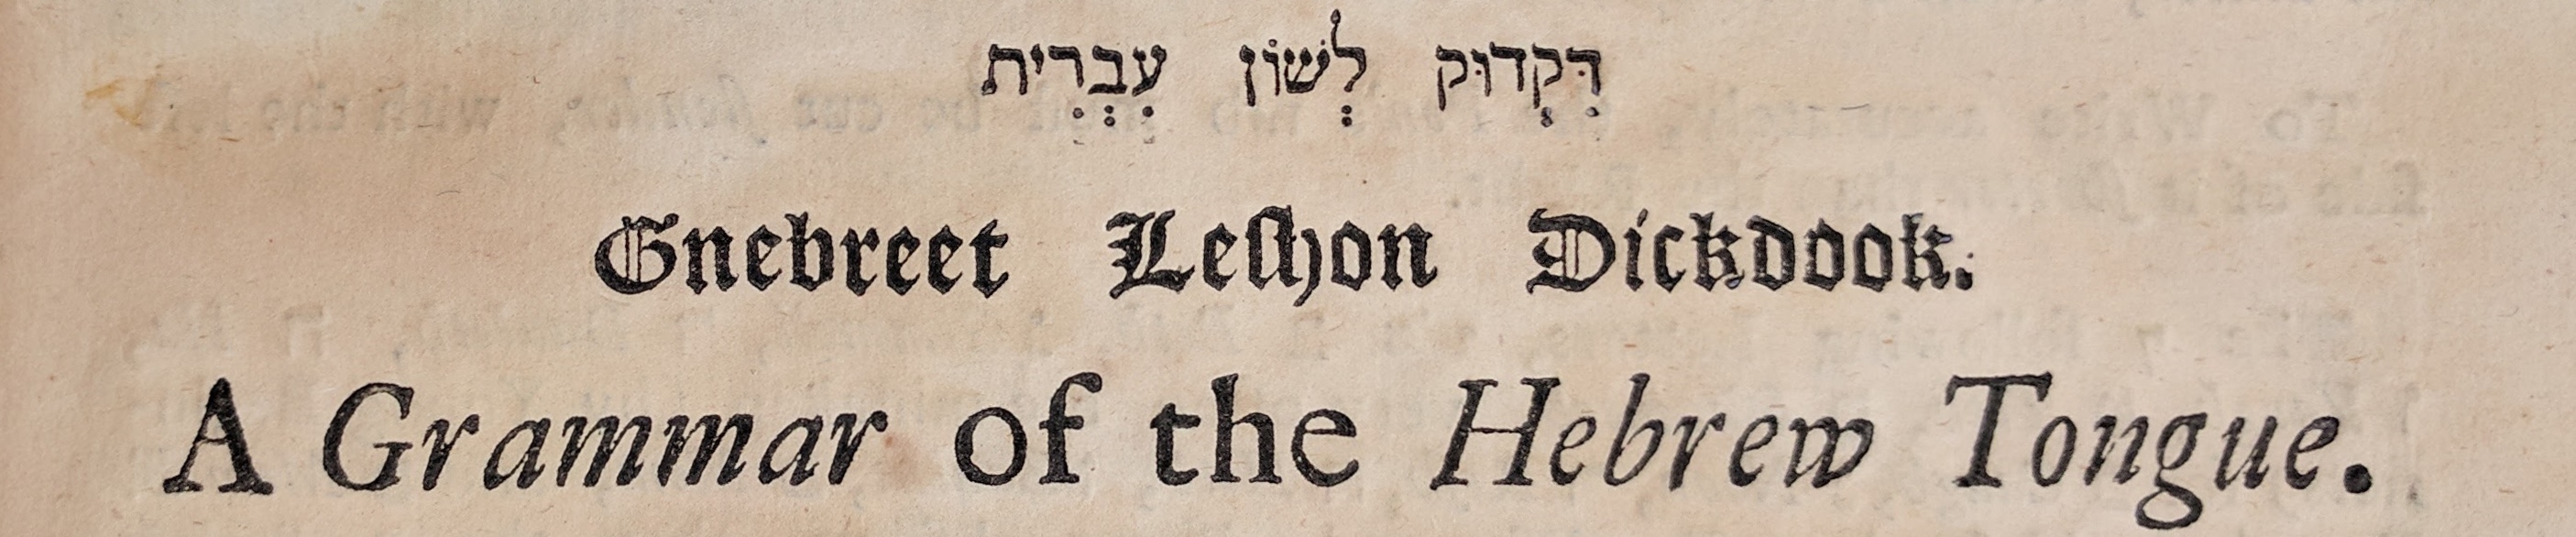 דִּקְדוּק לְשׁוֹן עִבְרִית
Gnebreet Leshon Dickdook.
A Grammar of the Hebrew Tongue.